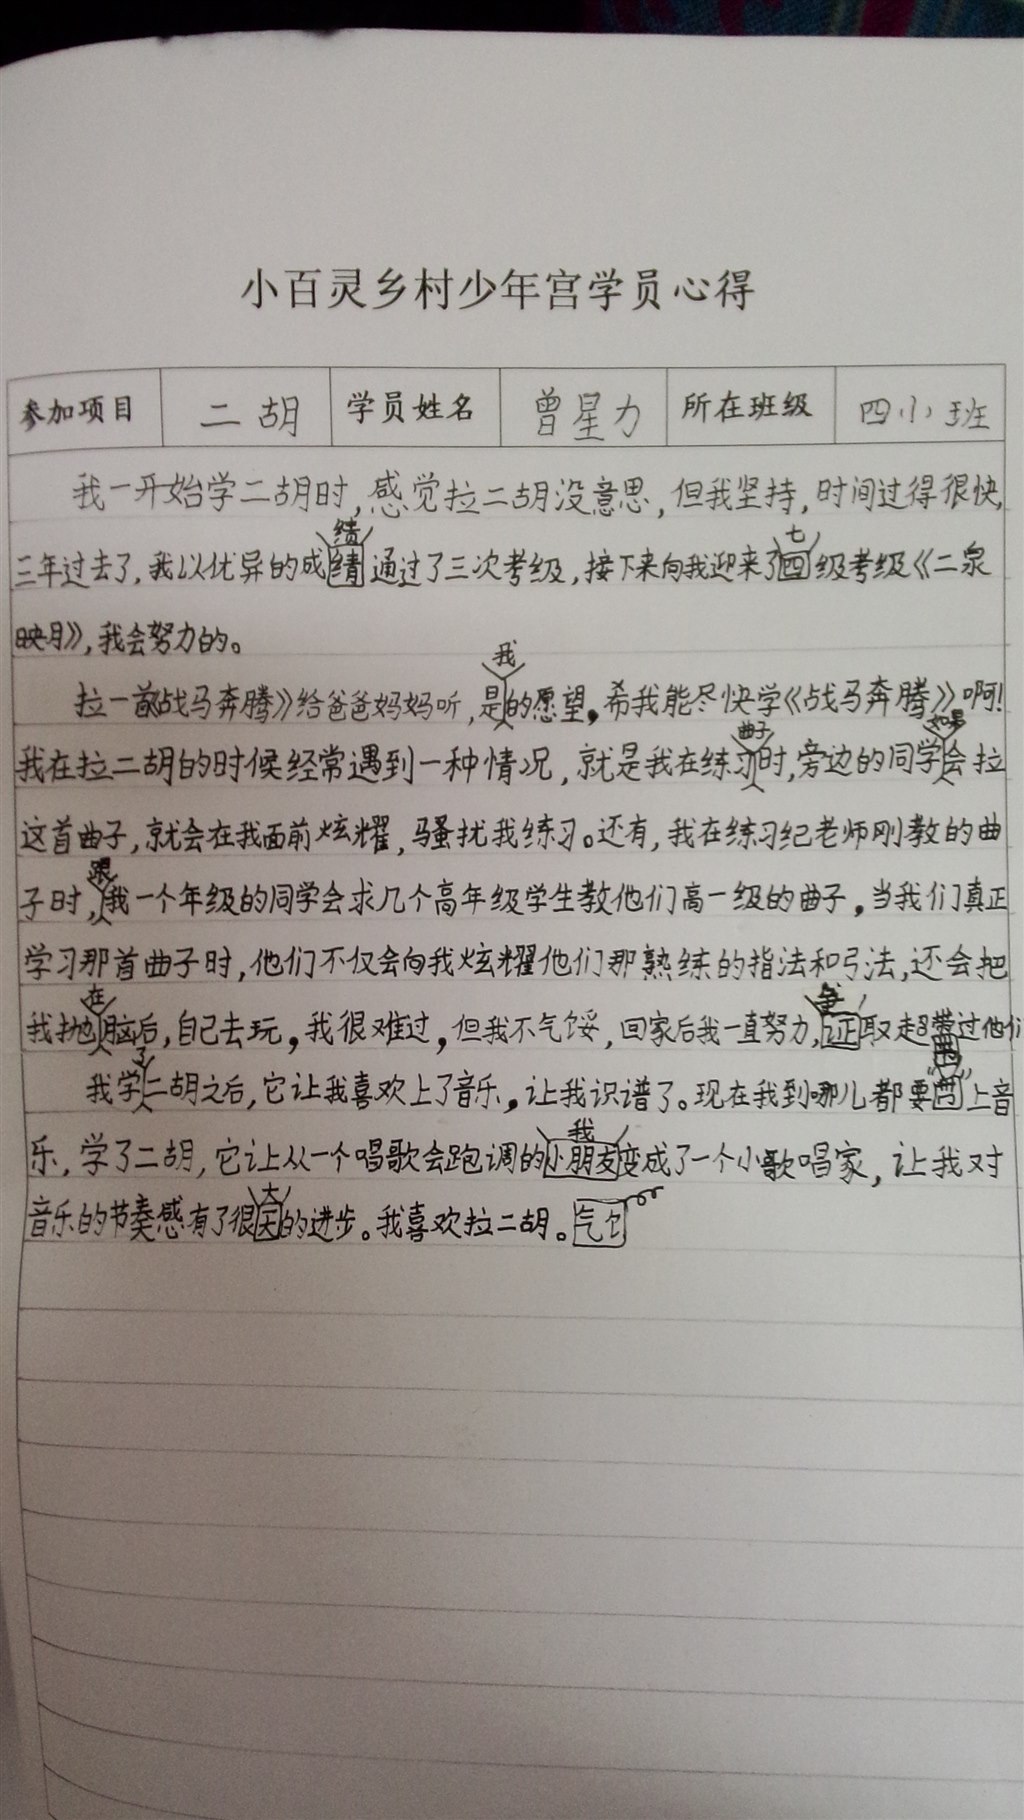 小百灵乡村少年宫学员心得
参加项目 二胡 学员姓名 曾星力 所在班级 四小班
我一开始学二胡时,感觉拉二胡没意思,但我坚持,时间过得很快,
三年过去了,我以优异的成绩通过了三次考级,接下来向我迎来了七级考级《二泉
映月》,我会努力的。
拉一首《战马奔腾》给爸爸妈妈听,是我的愿望,希我能尽快学《战马奔腾》啊!
我在拉二胡的时候经常遇到一种情况,就是我在练习曲子时,旁边的同学如果会拉
这首曲子,就会在我面前炫耀,骚扰我练习。还有,我在练习纪老师刚教的曲
子时,跟我一个年级的同学会求几个高年级学生教他们高一级的曲子,当我们真正
学习那首曲子时,他们不仅会向我炫耀他们那熟练的指法和弓法,还会把
我抛在脑后,自己去玩,我很难过,但我不气馁,回家后我一直努力,争取超过他们
我学了二胡之后,它让我喜欢上了音乐,让我识谱了。现在我到哪儿都要上音
乐,学了二胡,它让从一个唱歌会跑调的我变成了一个小歌唱家,让我对
音乐的节奏感有了很大的进步。我喜欢拉二胡。